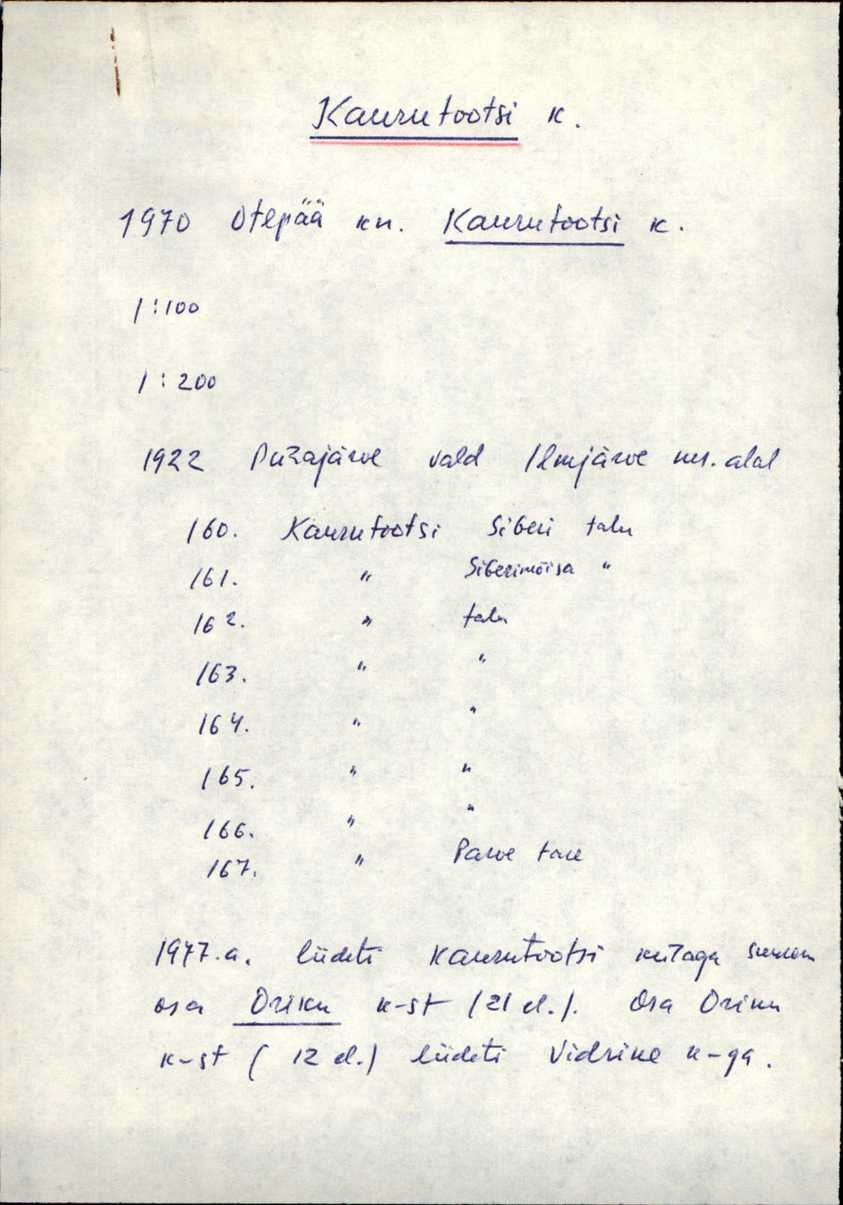 Kaurutootsi k.
1970 Otepää kn. Kaurutootsi k.
1:100
1:200
1922 Pühajärve vald Ilmjärve nr. alal
160. Kaurutootsi Siberi talu
161. " Siberimõisa "
162. " talu
163. " "
164. " "
165. " "
166. " "
167. " Parve tare
1977.a. liideti Kaurutootsi külaga suurem
osa Oriku k-st (21 el.). Osa Oriku
k-st (12 el.) liideti Vidrike k-ga.